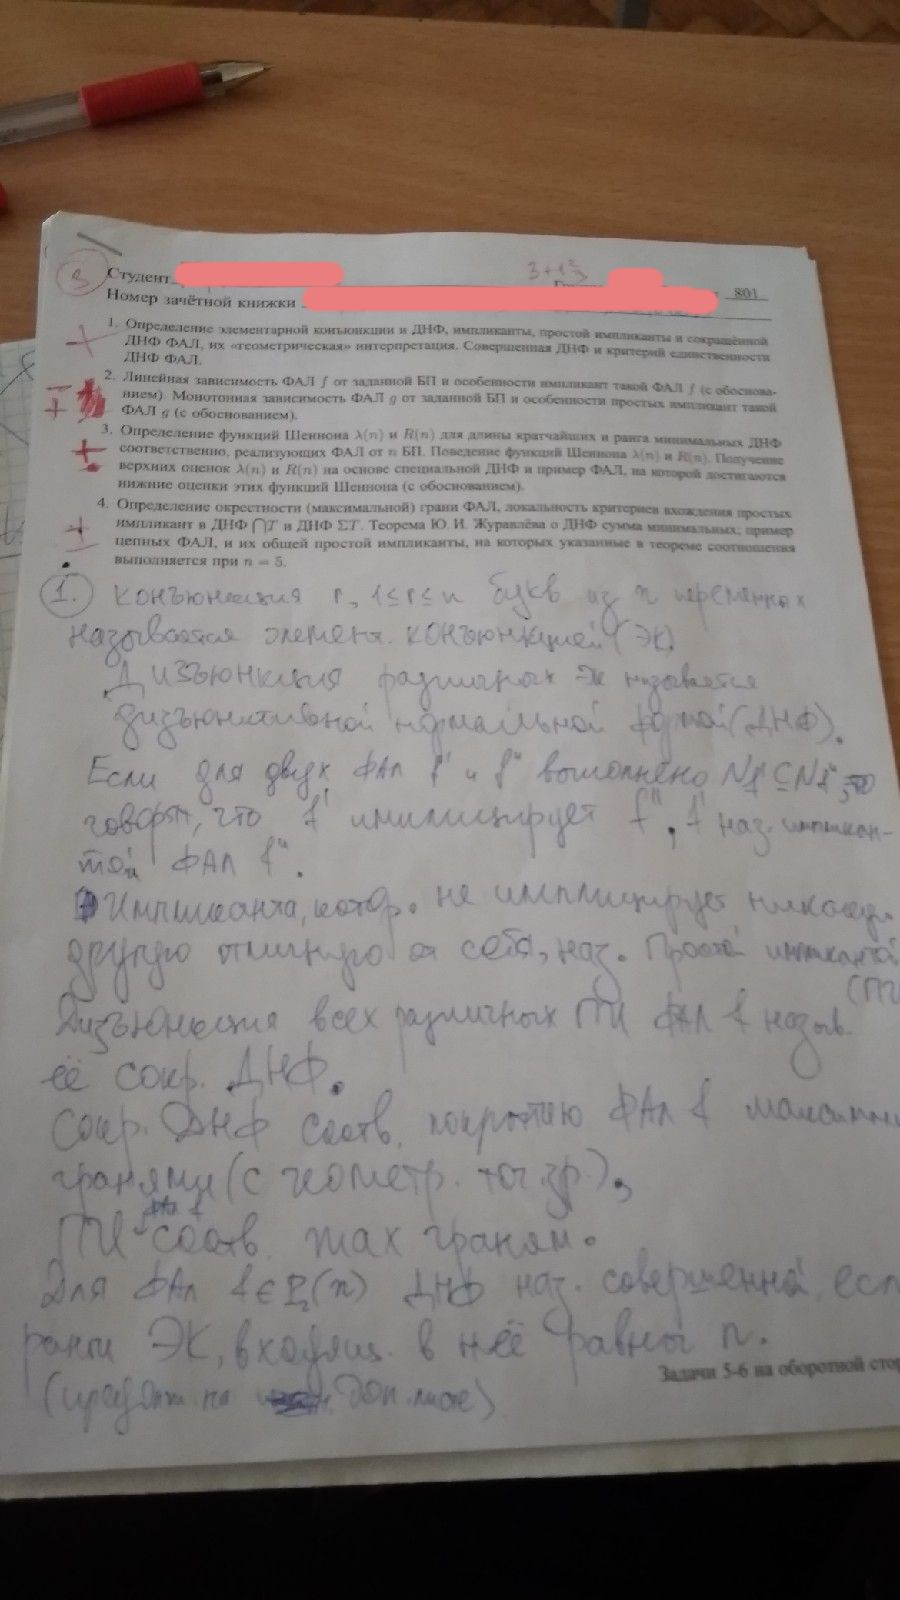 3
Студент
3+1⅔
Номер зачётной книжки
801
1. Определение элементарной конъюнкции и ДНФ, импликанты, простой импликанты и сокращённой
ДНФ ФАЛ, их «геометрическая» интерпретация. Совершенная ДНФ и критерий единственности
ДНФ ФАЛ.
2. Линейная зависимость ФАЛ f от заданной БП и особенности импликант такой ФАЛ f (с обоснова-
нием). Монотонная зависимость ФАЛ g от заданной БП и особенности простых импликант такой
ФАЛ g (с обоснованием).
3. Определение функций Шеннона λ(n) и R(n) для длины кратчайших и ранга минимальных ДНФ
соответственно, реализующих ФАЛ от n БП. Поведение функций Шеннона λ(n) и R(n). Получение
верхних оценок λ(n) и R(n) на основе специальной ДНФ и пример ФАЛ, на которой достигаются
нижние оценки этих функций Шеннона (с обоснованием).
4. Определение окрестности (максимальной) грани ФАЛ, локальность критериев вхождения простых
импликант в ДНФ ⋂T и ДНФ ΣT. Теорема Ю. И. Журавлёва о ДНФ сумма минимальных; пример
цепных ФАЛ, и их общей простой импликанты, на которых указанные в теореме соотношения
выполняется при n = 5.
1. Конъюнкция r, 1≤r≤n букв из n переменных
называется элемент. конъюнкцией (ЭК).
Дизъюнкция различных ЭК называется
дизъюнктивной нормальной формой (ДНФ).
Если для двух ФАЛ f' и f" выполнено Nf' ⊆ Nf", то
говорят, что f' имплицирует f", f' наз. имплкан-
той ФАЛ f".
Импликанта, котор. не имплицирует никакую
другую отличную от себя, наз. Простой импликантой
(ПИ
Дизъюнкция всех различных ПИ ФАЛ f назыв.
её сокр. ДНФ.
Сокр. ДНФ соотв. покрытию ФАЛ f максимал
гранями (с геометр. точ. зр.),
ФАЛ f
ПИ соотв. max граням.
Для ФАЛ f ∈ P₂(n) ДНФ наз. совершенной, есл
ранги ЭК, входящ. в неё равны n.
Задачи 5-6 на оборотной стор
(продолж. на доп. листе).